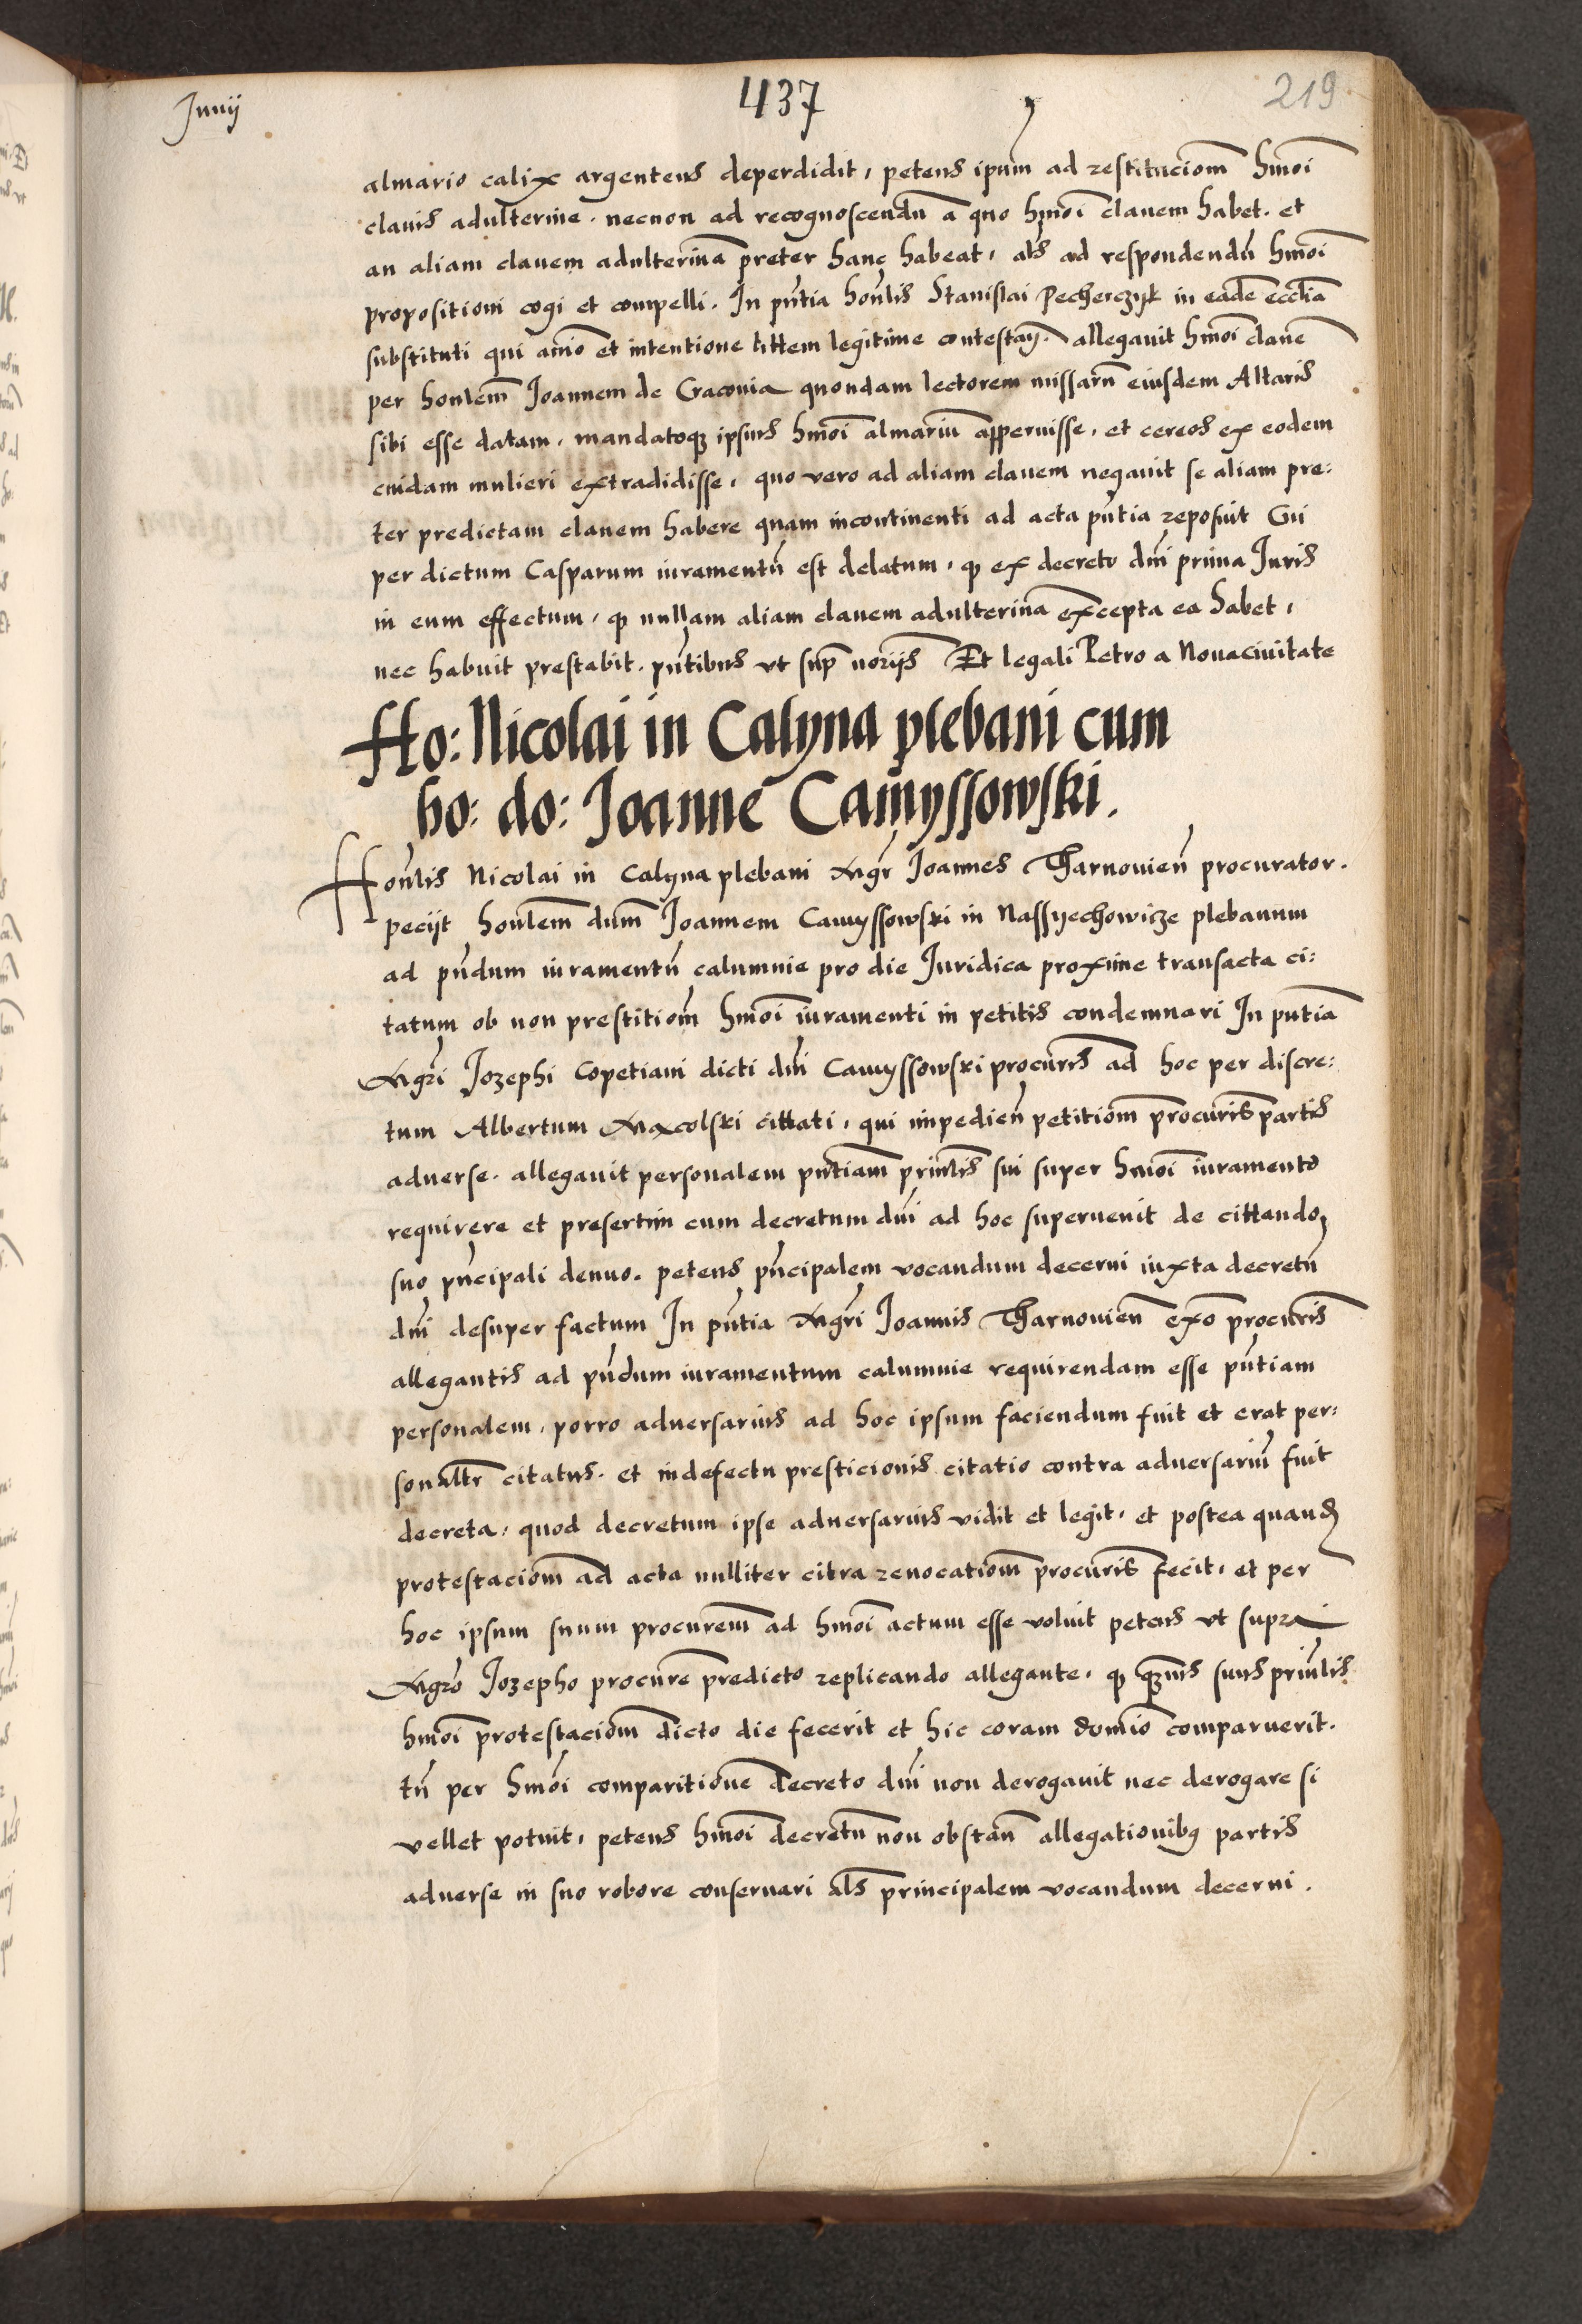 Junij
437
219
almario calix argenteus deperdidit, petens ipum̄ ad restituciom̄ hmōi
clauis adulterine. necnon ad recognoscendū a quo hmōi clauem habet. et
an aliam clauem adulterinā preter hanc habeat, als̄ ad respondendū hmōi
propositioni cogi et compelli. In pn̄tia hon̄lis Stanislai Pecherczyk in eadē ecclīa
substituti qui anīo et intentione littem legitime contestan̄. allegauit hmōi clauē
per honlem̄ Joannem de Cracouia quondam lectorem missarū eiusdem Altaris
sibi esse datam, mandatoq; ipsius hmōi almariū apperuisse, et cereos ex eodem
cuidam mulieri extradidisse, quo vero ad aliam clauem negauit se aliam pre:
ter predictam clauem habere quam incontinenti ad acta pn̄tia reposuit Cui
per dictum Casparum iuramentū est delatum, qꝫ ex decreto dn̄i prima Juris
in eum effectum, qꝫ nullam aliam clauem adulterinā excepta ea habet,
nec habuit prestabit. pn̄tibus vt sup̄ norijs Et legali Petro a Nouaciuitate
Ho: Nicolai in Calyna plebani cum
ho: do: Joanne Camyssowski.
Hon̄lis Nicolai in Calyna plebani Mgr̄ Joannes Tharnouien̄ procurator.
peciit honlem̄ dnum̄ Joannem Camyssowski in Nassyechowicze plebanum
ad pn̄dum iuramentū calumnie pro die Juridica proxime transacta ci:
tatum ob non prestitiom̄ hmōi iuramenti in petitis condemnari In pntiā
Mgrī Jozephi Copetiani dicti dn̄i Camyssowski procurīs ad hoc per discre:
tum Albertum Maxcolski cittati, qui impedien̄ petitiom̄ procurīs partis
aduerse. allegauit personalem pntiam̄ prinlīs sui super hmōi iuramento
requirere et presertim cum decretum dn̄i ad hoc superuenit de cittando
suo pn̄cipali denuo. petens pn̄cipalem vocandum decerni iuxta decretū
dn̄i desuper factum In pn̄tia Mgrī Joannis Tharnouien̄ exō procurīs
allegantis ad pn̄dum iuramentum calumnie requirendam esse pn̄tiam
personalem, porro aduersarius ad hoc ipsum faciendum fuit et erat per:
sonaltr̄ citatus. et indefectu presticionis citatio contra aduersariū fuit
decreta, quod decretum ipse aduersarius vidit et legit, et postea quandā
protestaciom̄ ad acta nulliter citra reuocatiom̄ procurīs fecit, et per
hoc ipsum suum procurem̄ ad hmōi actum esse voluit petens vt supra
Mgrō Jozepho procurē predicto replicando allegante, qꝫ qꝫuis̄ suus prinlīs
hmōi protestaciom̄ dicto die fecerit et hic coram domīo comparuerit.
tn̄ per hmōi comparitionē decreto dn̄i non derogauit nec derogare si
vellet potuit, petens hmōi decretū non obstan̄ allegationibꝫ partis
aduerse in suo robore conseruari als̄ principalem vocandum decerni.